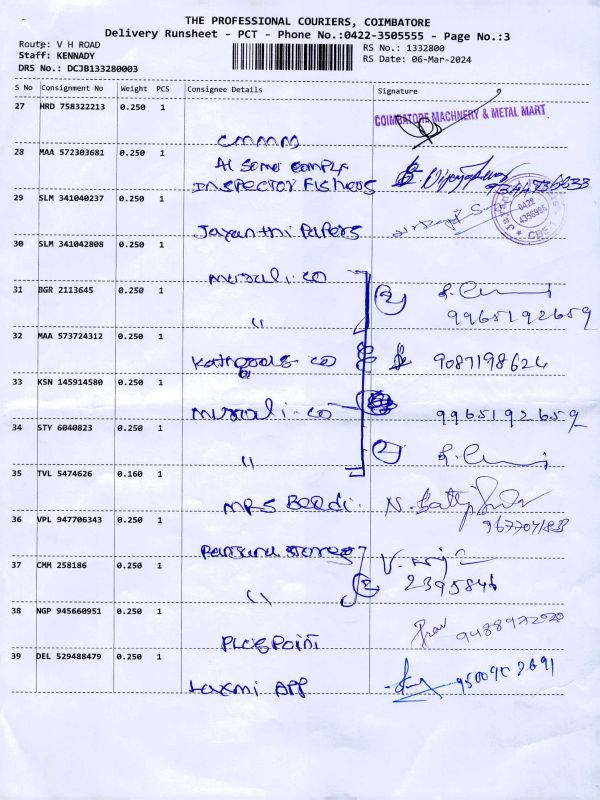 THE PROFESSIONAL COURIERS, COIMBATORE
Delivery Runsheet - PCT - Phone No.:0422-3505555 - Page No.:3
Route: V H ROAD
RS No.: 1332800
Staff: KENNADY
RS Date: 06-Mar-2024
DRS No.: DCJB133280003
S No Consignment No Weight PCS Consignee Details Signature
27 HRD 758322213 0.250 1
COIMBATORE MACHINERY & METAL MART
CMMM
28 MAA 572303681 0.250 1
INSPECTOR Fishers
29 SLM 341040237 0.250 1
0422
4356995
CBE
Jayanthi Papers
30 SLM 341042808 0.250 1
murali. co
31 BGR 2113645 0.250 1
2
9965192659
"
32 MAA 573724312 0.250 1
co 9087198624
33 KSN 145914580 0.250 1
murali. co 9965192659
34 STY 6040823 0.250 1
2
"
35 TVL 5474626 0.160 1
MRS
36 VPL 947706343 0.250 1
stores
37 CMM 258186 0.250 1
2 2395846
"
38 NGP 945660951 0.250 1
9488972520
Plugpoint
39 DEL 529488479 0.250 1
Laxmi APP